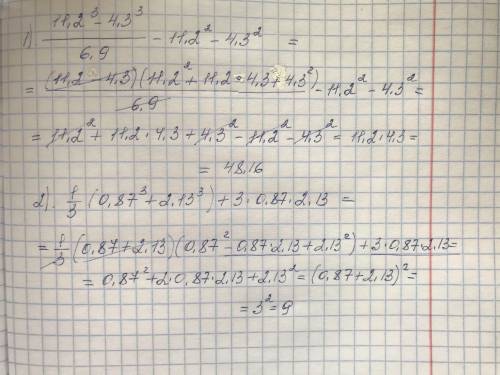 1). (11,2³ - 4,3³)/6,9 - 11,2² - 4,3² =
= (11,2 - 4,3)(11,2² + 11,2 · 4,3 + 4,3²)/6,9 - 11,2² - 4,3² =
= 11,2² + 11,2 · 4,3 + 4,3² - 11,2² - 4,3² = 11,2 · 4,3 =
= 48,16
2). 1/3 (0,87³ + 2,13³) + 3 · 0,87 · 2,13 =
= 1/3 (0,87 + 2,13)(0,87² - 0,87 · 2,13 + 2,13²) + 3 · 0,87 · 2,13 =
= 0,87² + 2 · 0,87 · 2,13 + 2,13² = (0,87 + 2,13)² =
= 3² = 9